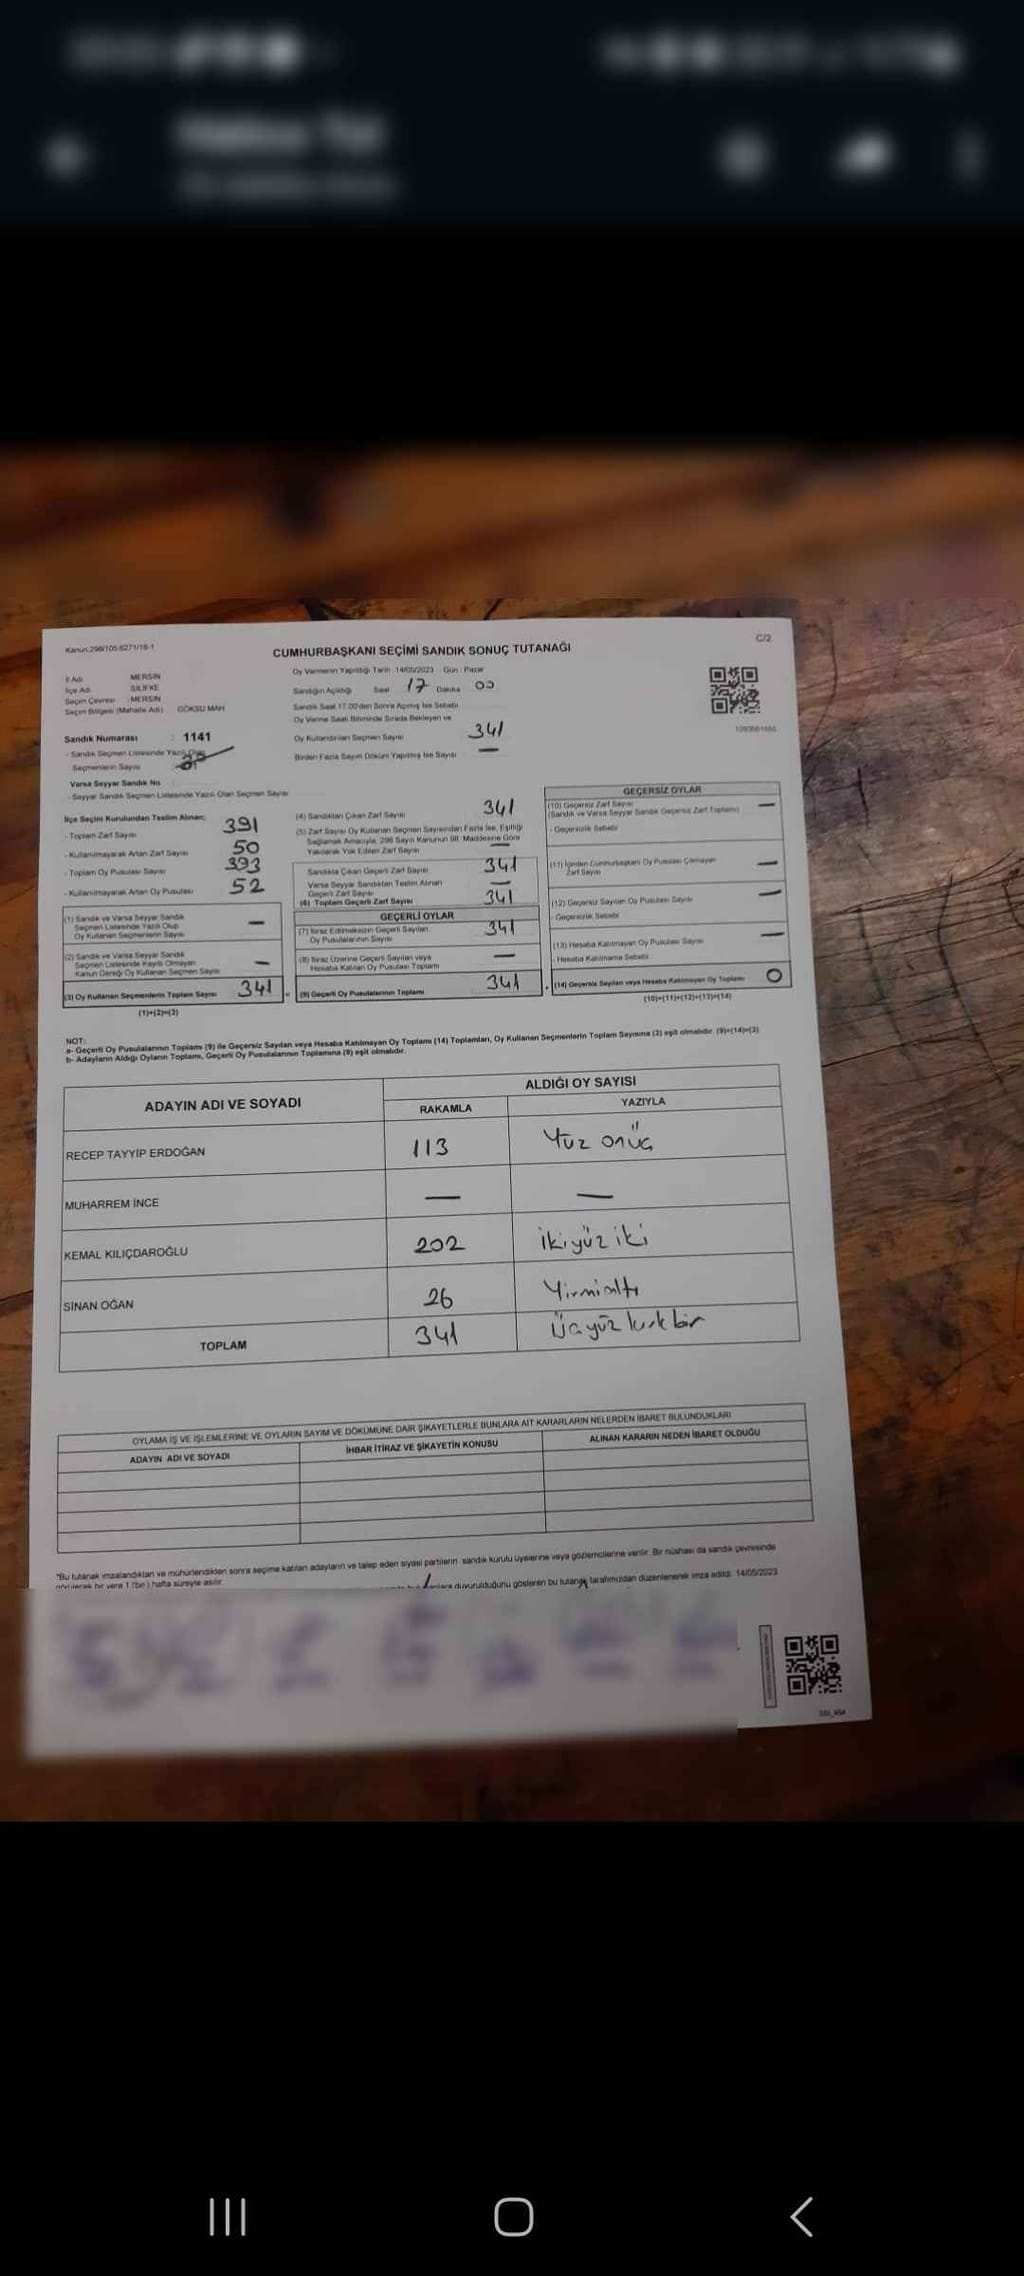 Kanun:298/105;6271/18-1
C/2
CUMHURBAŞKANI SEÇİMİ SANDIK SONUÇ TUTANAĞI
İl Adı MERSİN
İlçe Adı SİLİFKE
Seçim Çevresi : MERSİN
Seçim Bölgesi (Mahalle Adı) GÖKSU MAH
Sandık Numarası : 1141
- Sandık Seçmen Listesinde Yazılı Olan
Seçmenlerin Sayısı
Varsa Seyyar Sandık No
- Seyyar Sandık Seçmen Listesinde Yazılı Olan Seçmen Sayısı
Oy Vermenin Yapıldığı Tarih : 14/05/2023 Gün : Pazar
Sandığın Açıldığı Saat 17 Dakika 00
Sandık Saat 17.00'den Sonra Açılmış İse Sebebi
Oy Verme Saati Bitiminde Sırada Bekleyen ve
Oy Kullandırılan Seçmen Sayısı 341
Birden Fazla Sayım Döküm Yapılmış İse Sayısı —
İlçe Seçim Kurulundan Teslim Alınan;
- Toplam Zarf Sayısı 391
- Kullanılmayarak Artan Zarf Sayısı 50
- Toplam Oy Pusulası Sayısı 393
- Kullanılmayarak Artan Oy Pusulası 52
(1) Sandık ve Varsa Seyyar Sandık
Seçmen Listesinde Yazılı Olup
Oy Kullanan Seçmenlerin Sayısı —
(2) Sandık ve Varsa Seyyar Sandık
Seçmen Listesinde Kayıtlı Olmayan
Kanun Gereği Oy Kullanan Seçmen Sayısı —
(3) Oy Kullanan Seçmenlerin Toplam Sayısı 341
(1)+(2)=(3)
(4) Sandıktan Çıkan Zarf Sayısı 341
(5) Zarf Sayısı Oy Kullanan Seçmen Sayısından Fazla İse, Eşitliği
Sağlamak Amacıyla, 298 Sayılı Kanunun 98. Maddesine Göre
Yakılarak Yok Edilen Zarf Sayısı —
Sandıkta Çıkan Geçerli Zarf Sayısı 341
Varsa Seyyar Sandıktan Teslim Alınan
Geçerli Zarf Sayısı —
(6) Toplam Geçerli Zarf Sayısı 341
GEÇERLİ OYLAR
(7) İtiraz Edilmeksizin Geçerli Sayılan
Oy Pusulalarının Sayısı 341
(8) İtiraz Üzerine Geçerli Sayılan veya
Hesaba Katılan Oy Pusulası Toplamı —
(9) Geçerli Oy Pusulalarının Toplamı 341
GEÇERSİZ OYLAR
(10) Geçersiz Zarf Sayısı —
(Sandık ve Varsa Seyyar Sandık Geçersiz Zarf Toplamı)
- Geçersizlik Sebebi
(11) İçinden Cumhurbaşkanı Oy Pusulası Çıkmayan
Zarf Sayısı —
(12) Geçersiz Sayılan Oy Pusulası Sayısı —
- Geçersizlik Sebebi
(13) Hesaba Katılmayan Oy Pusulası Sayısı —
- Hesaba Katılmama Sebebi
(14) Geçersiz Sayılan veya Hesaba Katılmayan Oy Toplamı 0
(10)+(11)+(12)+(13)=(14)
NOT:
a- Geçerli Oy Pusulalarının Toplamı (9) ile Geçersiz Sayılan veya Hesaba Katılmayan Oy Toplamı (14) Toplamları, Oy Kullanan Seçmenlerin Toplam Sayısına (3) eşit olmalıdır. (9)+(14)=(3)
b- Adayların Aldığı Oyların Toplamı, Geçerli Oy Pusulalarının Toplamına (9) eşit olmalıdır.
ADAYIN ADI VE SOYADI
ALDIĞI OY SAYISI
RAKAMLA YAZIYLA
RECEP TAYYİP ERDOĞAN 113 Yüz onüç
MUHARREM İNCE — —
KEMAL KILIÇDAROĞLU 202 ikiyüz iki
SİNAN OĞAN 26 Yirmialtı
TOPLAM 341 Üçyüz kırk bir
OYLAMA İŞ VE İŞLEMLERİNE VE OYLARIN SAYIM VE DÖKÜMÜNE DAİR ŞİKAYETLERLE BUNLARA AİT KARARLARIN NELERDEN İBARET BULUNDUKLARI
ADAYIN ADI VE SOYADI İHBAR İTİRAZ VE ŞİKAYETİN KONUSU ALINAN KARARIN NEDEN İBARET OLDUĞU
*Bu tutanak imzalandıktan ve mühürlendikten sonra seçime katılan adayların ve talep eden siyasi partilerin sandık kurulu üyelerine veya gözlemcilerine verilir. Bir nüshası da sandık çevresinde
görülecek bir yere 1 (bir) hafta süreyle asılır.
duyurulduğunu gösteren bu tutanak tarafımızdan düzenlenerek imza edildi. 14/05/2023